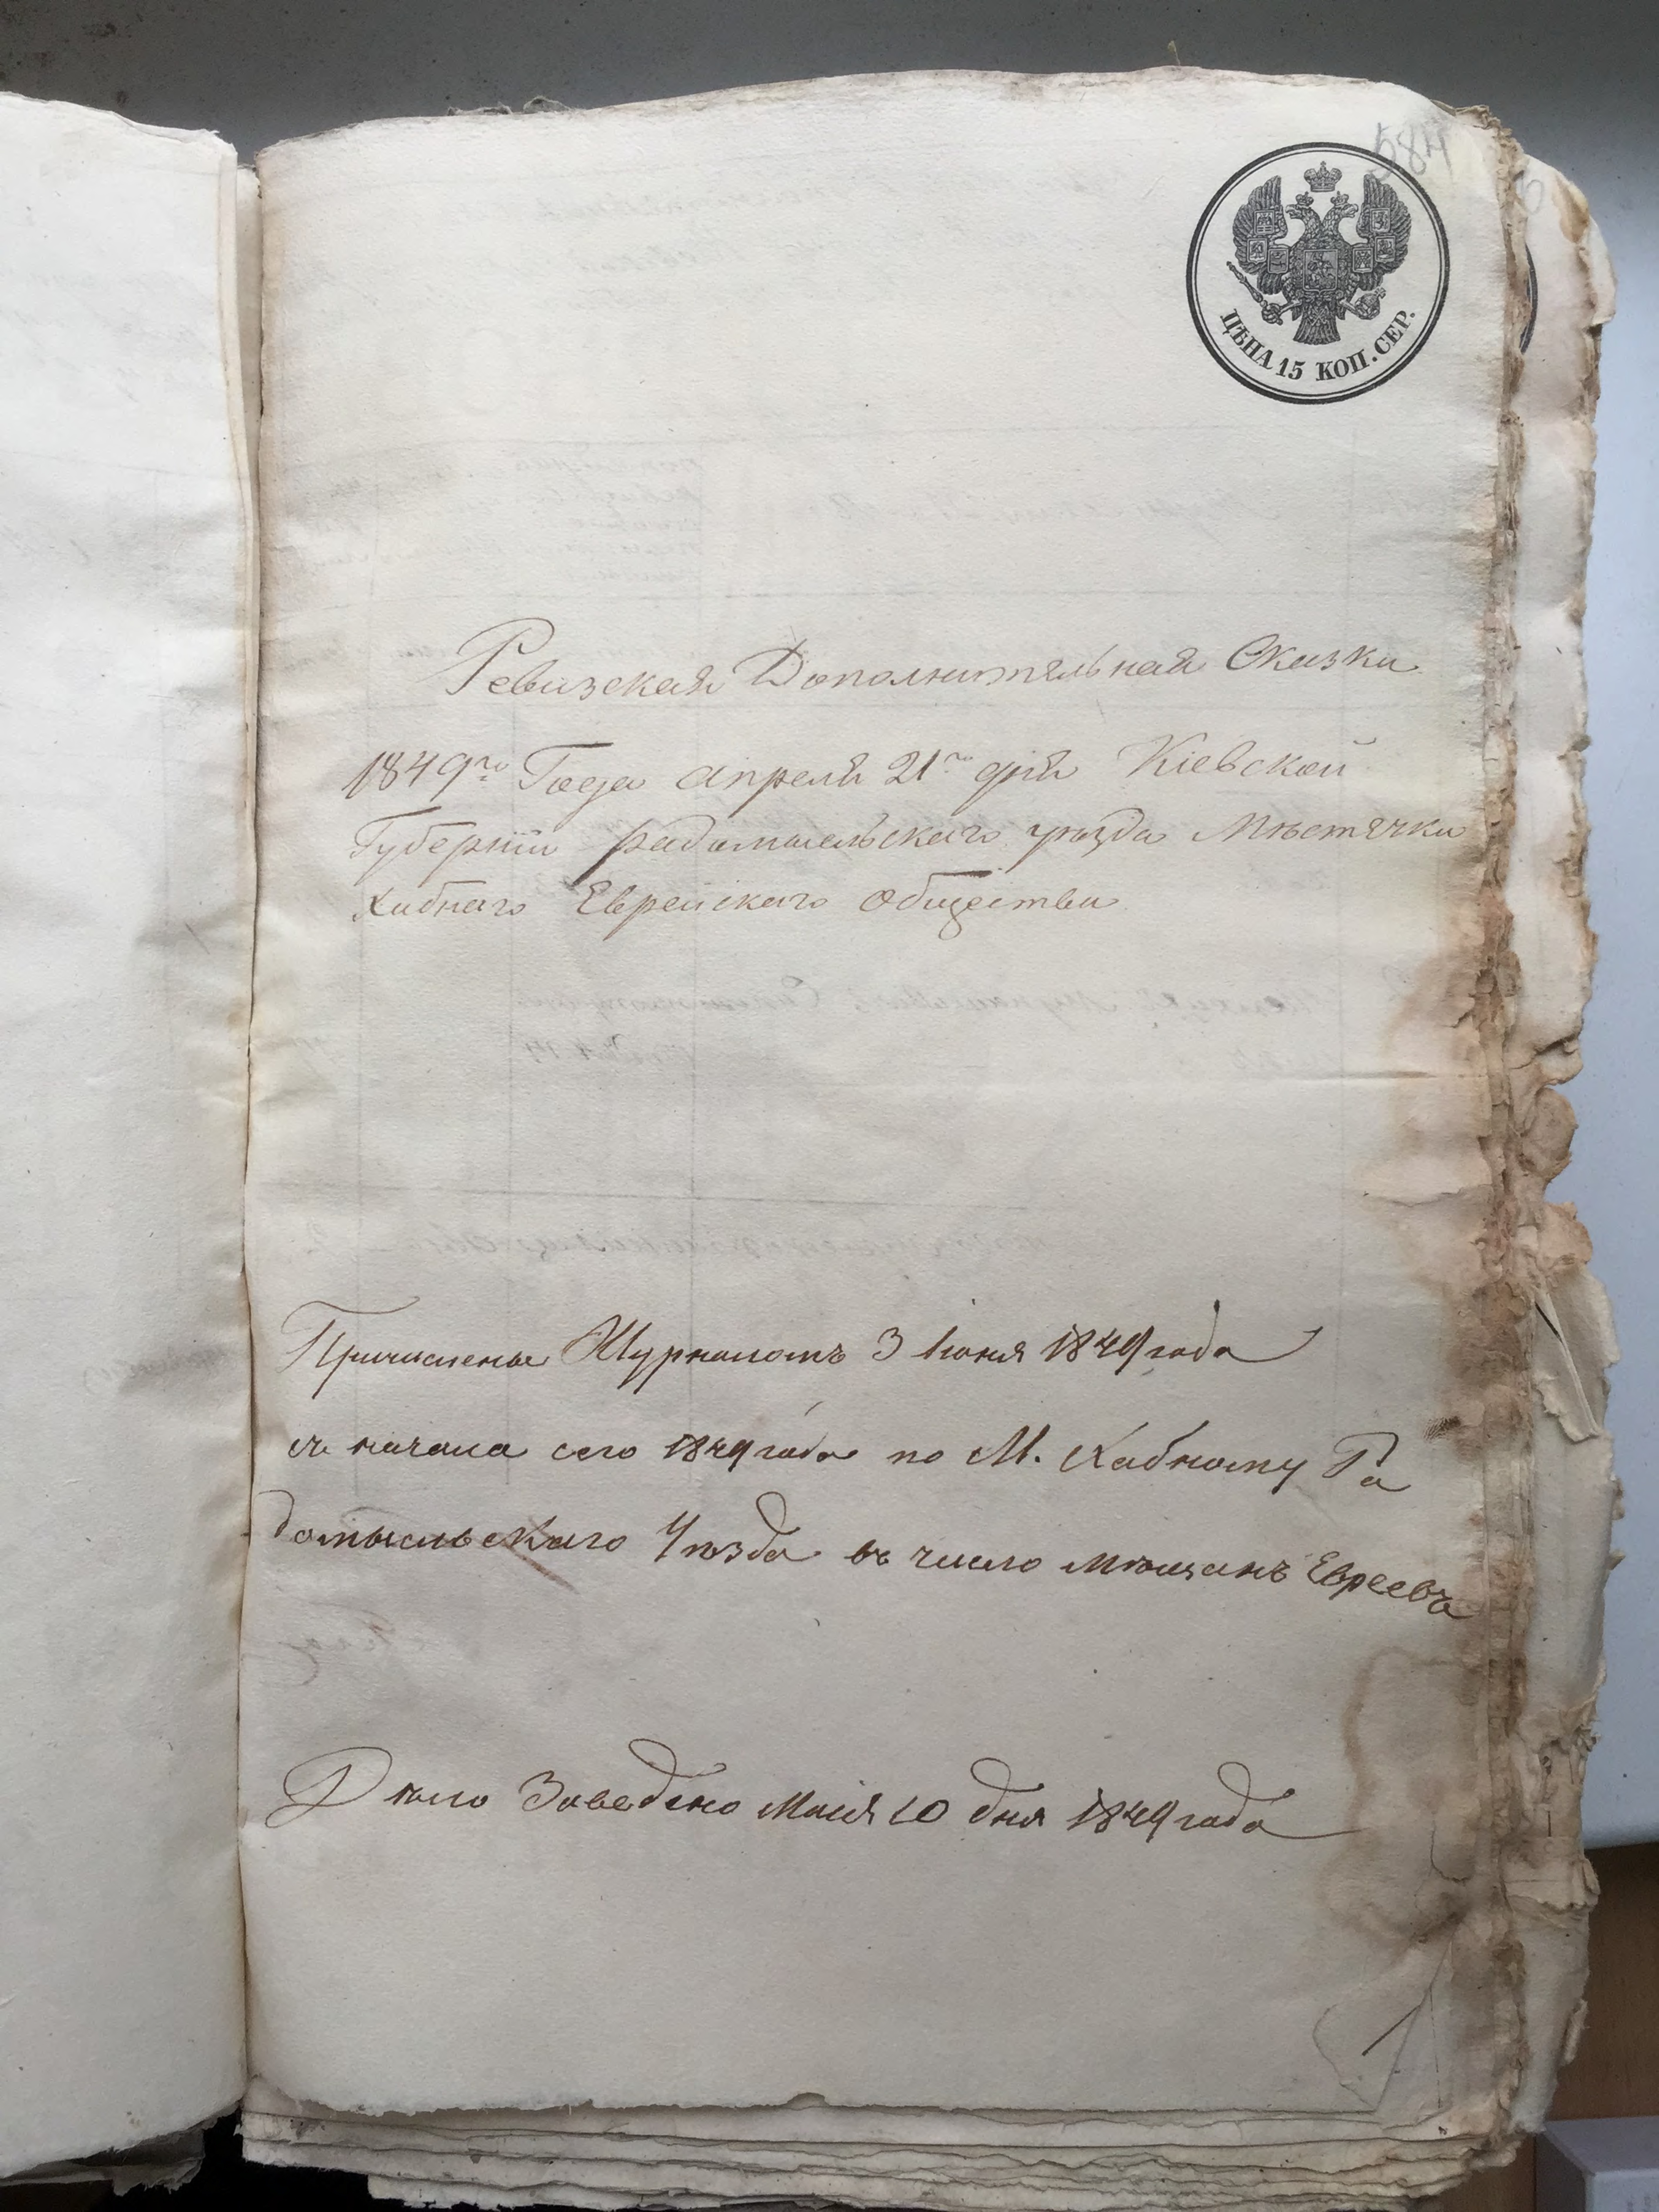 584
ЦѢНА 15 КОП. СЕР.
Ревизская Дополнительная Сказка
1849го Года апреля 21го дня Кіевской
Губерніи Радомысльскаго уѣзда Мѣстечка
Хабнаго Еврейскаго Общества
Причислены Журналомъ 3 Іюня 1849 года
съ начала сего 1849 года по М. Хабному Ра
домысльскаго Уѣзда въ число мѣщанъ Евреевъ
Дѣло Заведено Маія 10 дня 1849 года